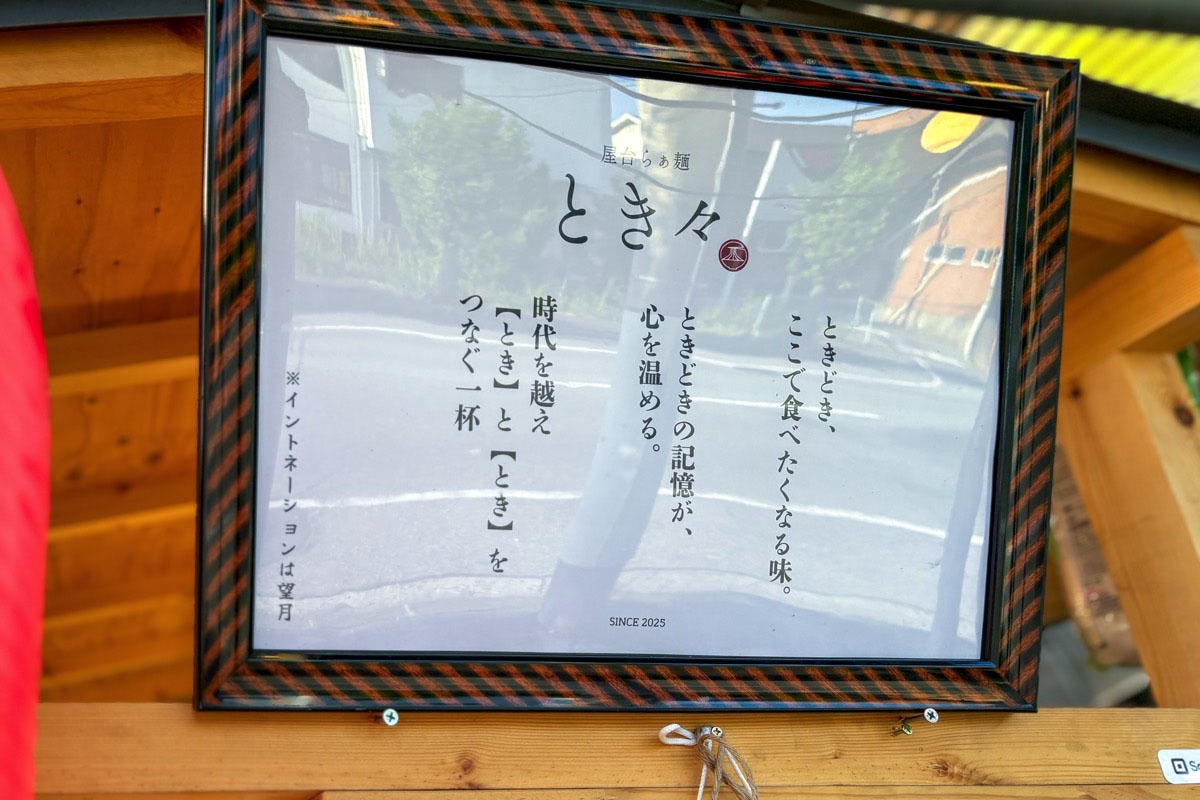 屋台らぁ麺
とき々
ときどき、
ここで食べたくなる味。
ときどきの記憶が、
心を温める。
時代を越え
【とき】と【とき】を
つなぐ一杯
※イントネーションは望月
SINCE 2025